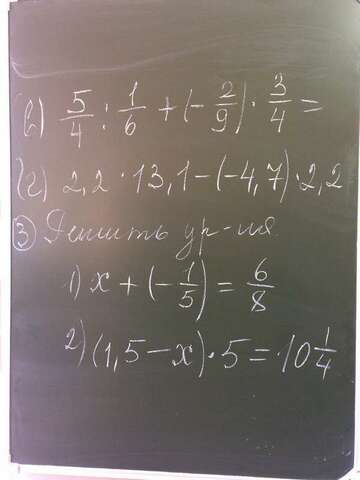 в) 5/4 : 1/6 + (- 2/9) · 3/4 =
г) 2,2 · 13,1 - (-4,7) · 2,2
③ Решить ур-ия
1) x + (- 1/5) = 6/8
2) (1,5 - x) · 5 = 10 1/4